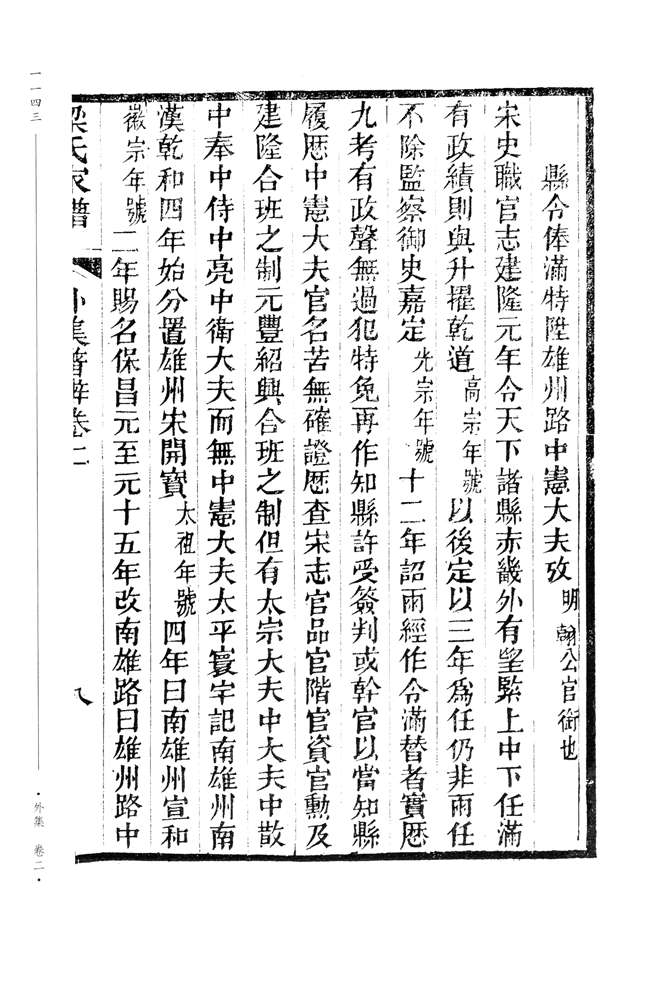 縣令俸滿特陞雄州路中憲大夫攷明翰公官銜也
宋史職官志建隆元年令天下諸縣赤畿外有望緊上中下任滿
有政績則與升擢乾道高宗年號以後定以三年爲任仍非兩任
不除監察御史嘉定光宗年號十二年詔兩經作令滿替者實歷
九考有政聲無過犯特免再作知縣許受簽判或幹官以當知縣
履歴中憲大夫官名苦無確證歴查宋志官品官階官資官勳及
建隆合班之制元豐紹興合班之制但有太宗大夫中大夫中散
中奉中侍中亮中衛大夫而無中憲大夫太平寰宇記南雄州南
漢乾和四年始分置雄州宋開寶太祖年號四年曰南雄州宣和
徽宗年號二年賜名保昌元至元十五年改南雄路曰雄州路中
梁氏家譜 外集譜辨卷二 八
一一四三
·外集 卷二·